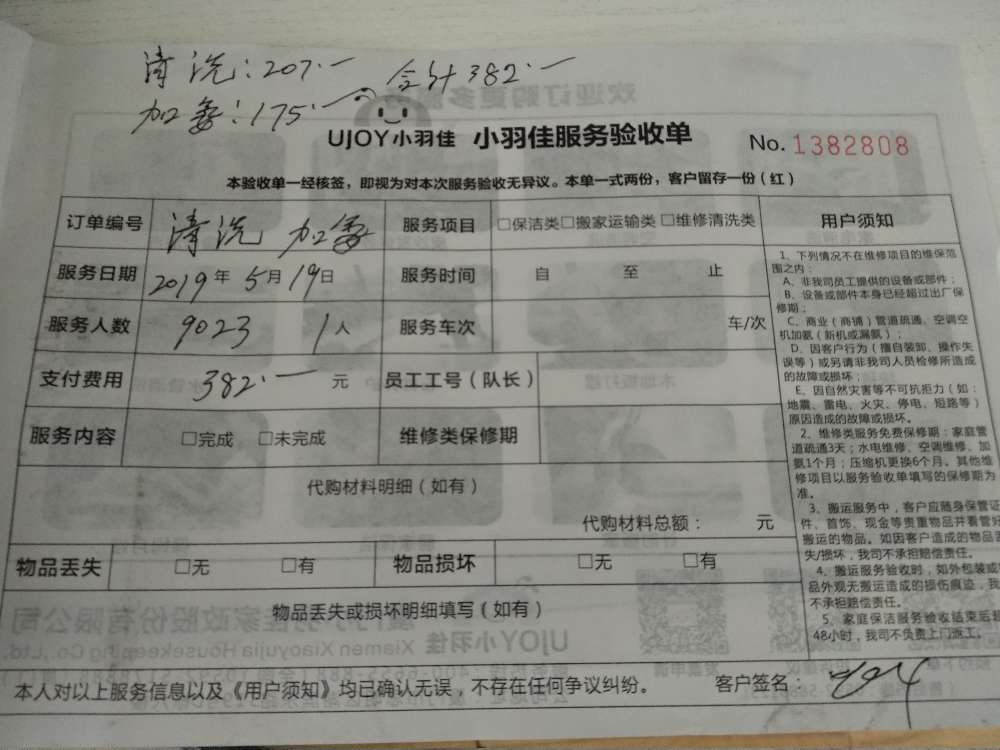 清洗：207.一 合计382.一
加氨：175.一
UJOY小羽佳 小羽佳服务验收单 No. 1382808
本验收单一经核签，即视为对本次服务验收无异议。本单一式两份，客户留存一份（红）
订单编号 清洗 加氨 服务项目 □保洁类□搬家运输类 □维修清洗类
服务日期 2019年 5月19日 服务时间 自 至 止
服务人数 9023 1人 服务车次 车/次
支付费用 382.一 元 员工工号（队长）
服务内容 □完成 □未完成 维修类保修期
代购材料明细（如有）
代购材料总额： 元
物品丢失 □无 □有 物品损坏 □无 □有
物品丢失或损坏明细填写（如有）
用户须知
1、下列情况不在维修项目的维保范
围之内：
A、非我司员工提供的设备或部件；
B、设备或部件本身已经超过出厂保
修期；
C、商业（商铺）管道疏通、空调空
机加氨（新机或漏氨）；
D、因客户行为（擅自装卸、操作失
误等）或另请非我司人员检修所造成
的故障或损坏；
E、因自然灾害等不可抗拒力（如：
地震、雷电、火灾、停电、短路等）
原因造成的故障或损坏。
2、维修类服务免费保修期：家庭管
道疏通3天；水电维修、空调维修、加
氨1个月；压缩机更换6个月。其他维
修项目以服务验收单填写的保修期为
准。
3、搬运服务中，客户应随身保管证
件、首饰、现金等贵重物品并看管好
搬运的物品。如因客户造成的物品丢
失/损坏，我司不承担赔偿责任。
4、搬运服务验收时，如外包装或
品外观无搬运造成的损伤痕迹，我
不承担赔偿责任。
5、家庭保洁服务验收结束后超
48小时，我司不负责上门返工。
本人对以上服务信息以及《用户须知》均已确认无误，不存在任何争议纠纷。 客户签名：